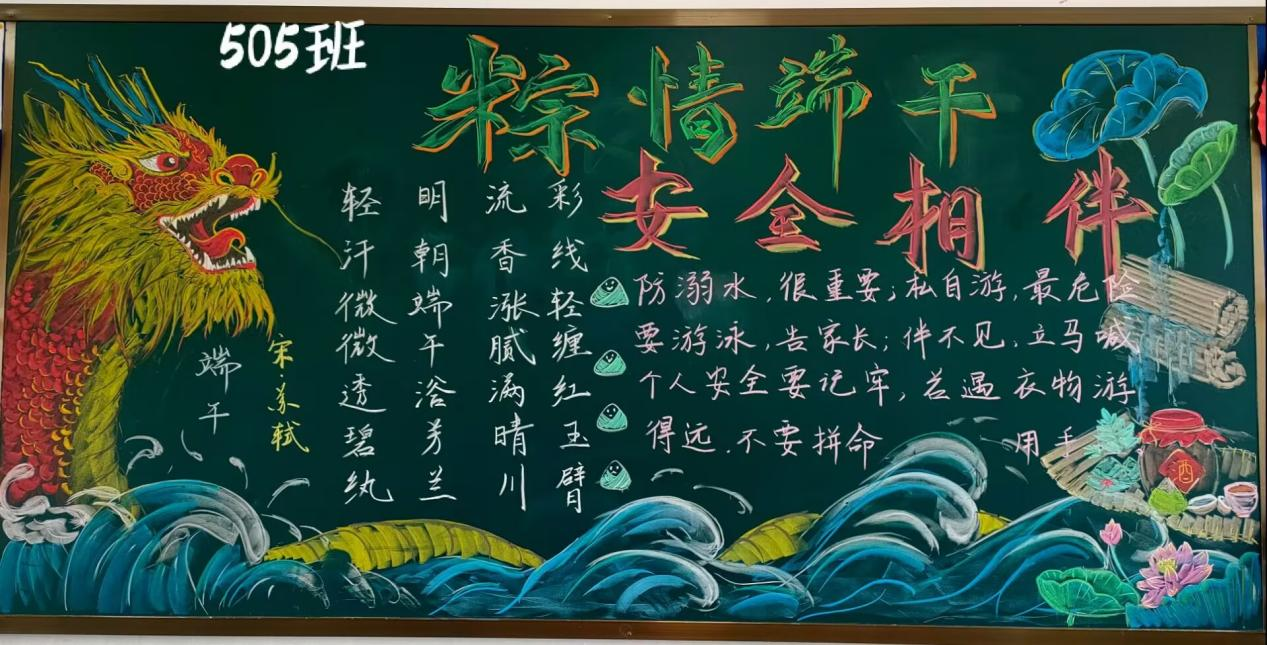 505班
粽情端午
安全相伴
端午
宋苏轼
轻汗微微透碧纨
明朝端午浴芳兰
流香涨腻满晴川
彩线轻缠红玉臂
防溺水，很重要；私自游，最危险
要游泳，告家长；伴不见，立马喊
个人安全要记牢，若遇衣物游
得远，不要拼命 用手
酒